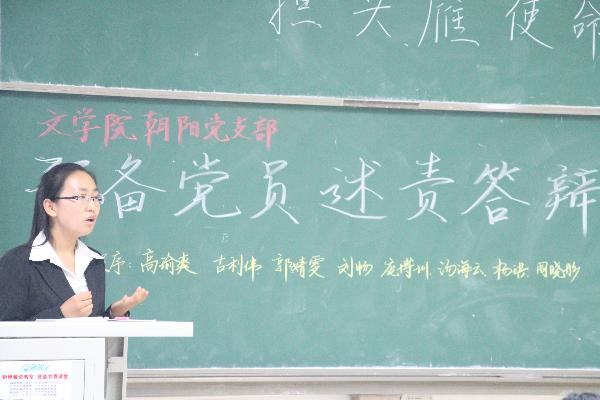 担头雁使命
文学院朝阳党支部
预备党员述责答辩
序：高瑜爽 吉利伟 郭婧雯 刘畅 庞博训 汤海云 杨洪 周晓彤